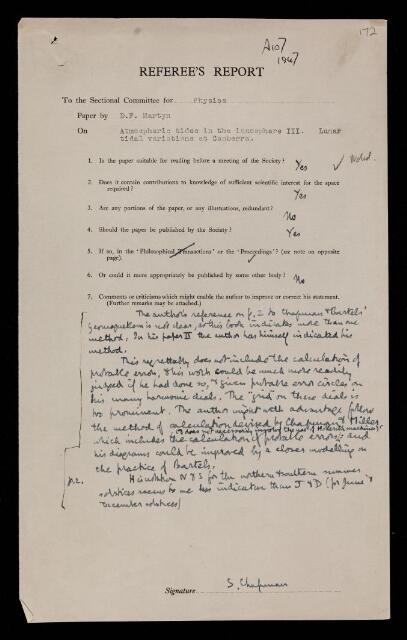 172
A107
1947
REFEREE'S REPORT
To the Sectional Committee for Physics
Paper by D.F. Martyn
On Atmospheric tides in the ionosphere III. Lunar
tidal variations at Canberra.
1. Is the paper suitable for reading before a meeting of the Society? Yes ✓ Noted.
2. Does it contain contributions to knowledge of sufficient scientific interest for the space
required? Yes
3. Are any portions of the paper, or any illustrations, redundant? No
4. Should the paper be published by the Society? Yes
5. If so, in the 'Philosophical Transactions' or the 'Proceedings'? (see note on opposite
page). ✓
6. Or could it more appropriately be published by some other body? No
7. Comments or criticisms which might enable the author to improve or correct his statement.
(Further remarks may be attached.)
The author's reference on p. 2 to Chapman & Bartels'
Geomagnetism is not clear, as this book indicates more than one
method. In his paper II the author has himself indicated his
method.
This regrettably does not include the calculation of
probable error, & his work could be much more readily
judged if he had done so, & given probable error circles on
his many harmonic dials. The "grid" on these dials is
too prominent. The author might with advantage follow
the method of calculation devised by Chapman & Miller
(& does not necessarily involve the use of Hollerith machinery)
which includes the calculation of probable errors; and
his diagrams could be improved by a closer modelling on
the practice of Bartels.
p.2. His notation N & S for the northern & southern summer
solstices seems to me less indicative than J & D (for June &
December solstices)
Signature S. Chapman